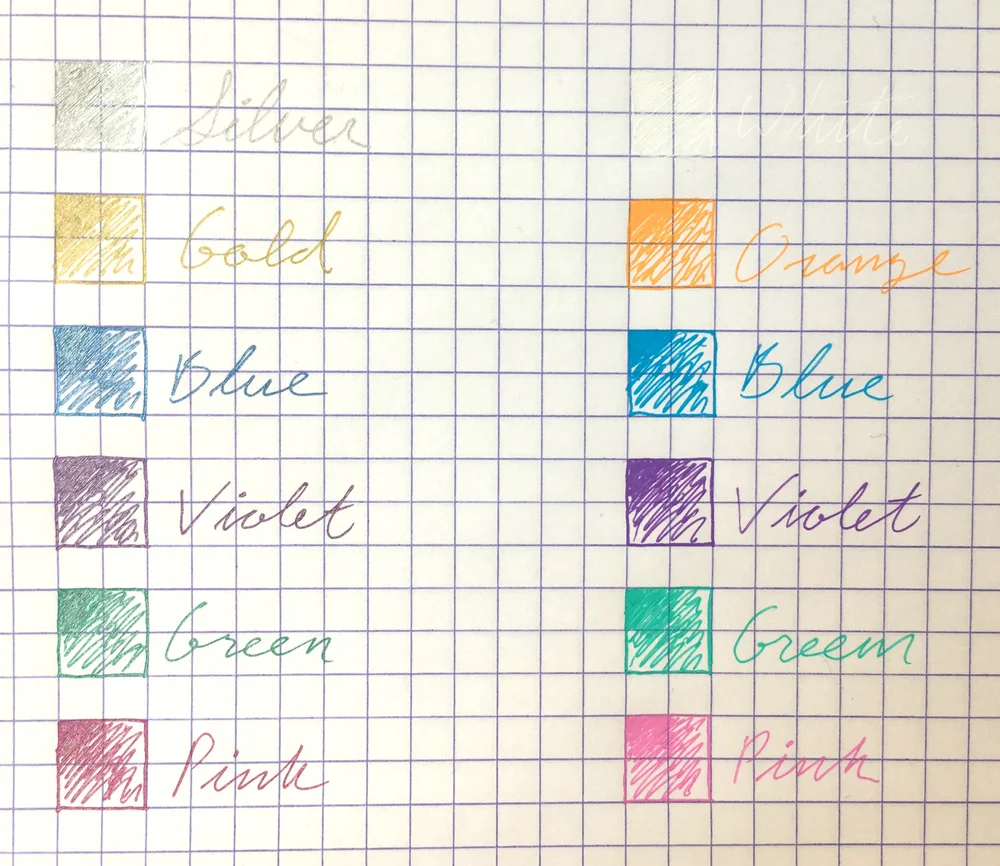 Silver White
Gold Orange
Blue Blue
Violet Violet
Green Green
Pink Pink